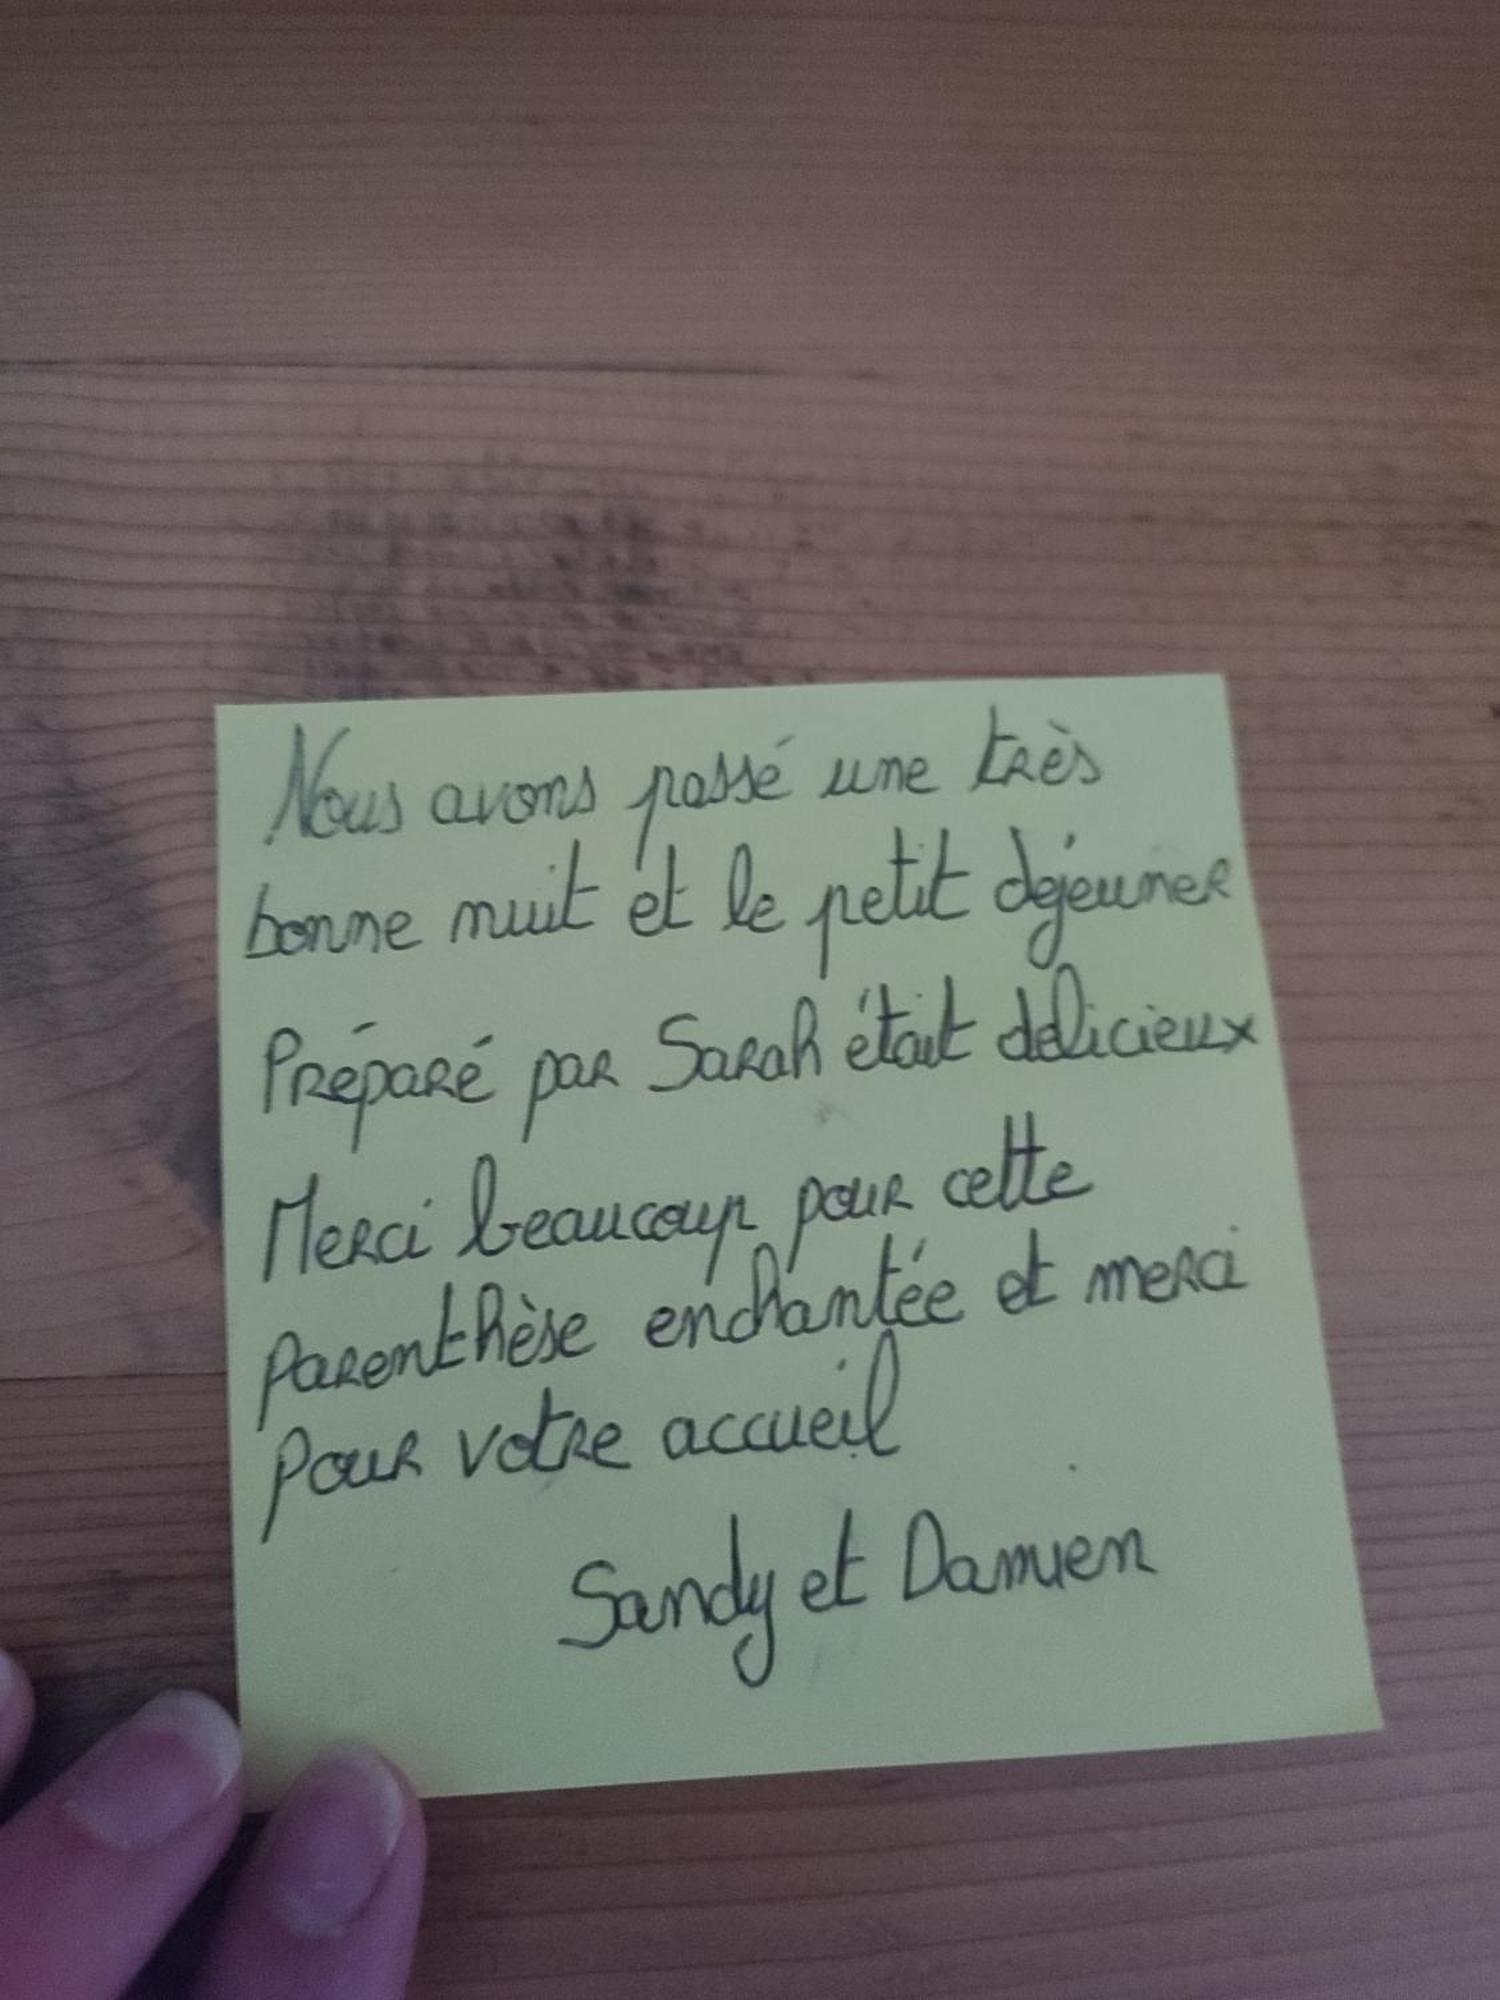 Nous avons passé une très
bonne nuit et le petit déjeuner
Préparé par Sarah était délicieux
Merci beaucoup pour cette
parenthèse enchantée et merci
pour votre accueil
Sandy et Damien